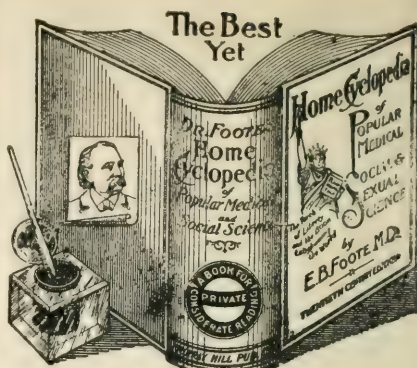 The Best
Yet
DR. FOOTE'S
Home
Cyclopedia
of
Popular Medical
and
Social Science
A BOOK FOR
PRIVATE
CONSIDERATE READING
HILL PUB.
Home Cyclopedia
of
POPULAR
MEDICAL
SOCIAL &
SEXUAL
SCIENCE
by
E.B. FOOTE, M.D.
TWENTIETH CENTURY EDITION